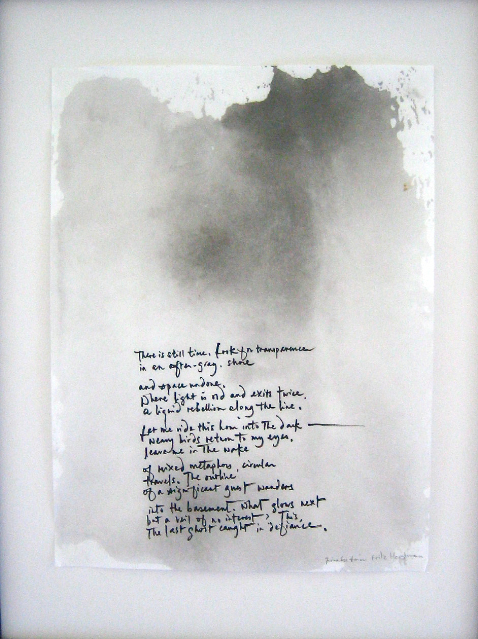 There is still time. Look for transparence
in an after-gray. shore
and space undone.
Where light is old and exits twice,
a liquid rebellion along the line.
Let me ride this horn into the dark
weary birds return to my eyes,
leave me in the wake
of mixed metaphors, circular
travels. The outline
of a significant guest wanders
into the basement. What glows next
but a veil of no interest? This,
the last ghost caught in defiance.